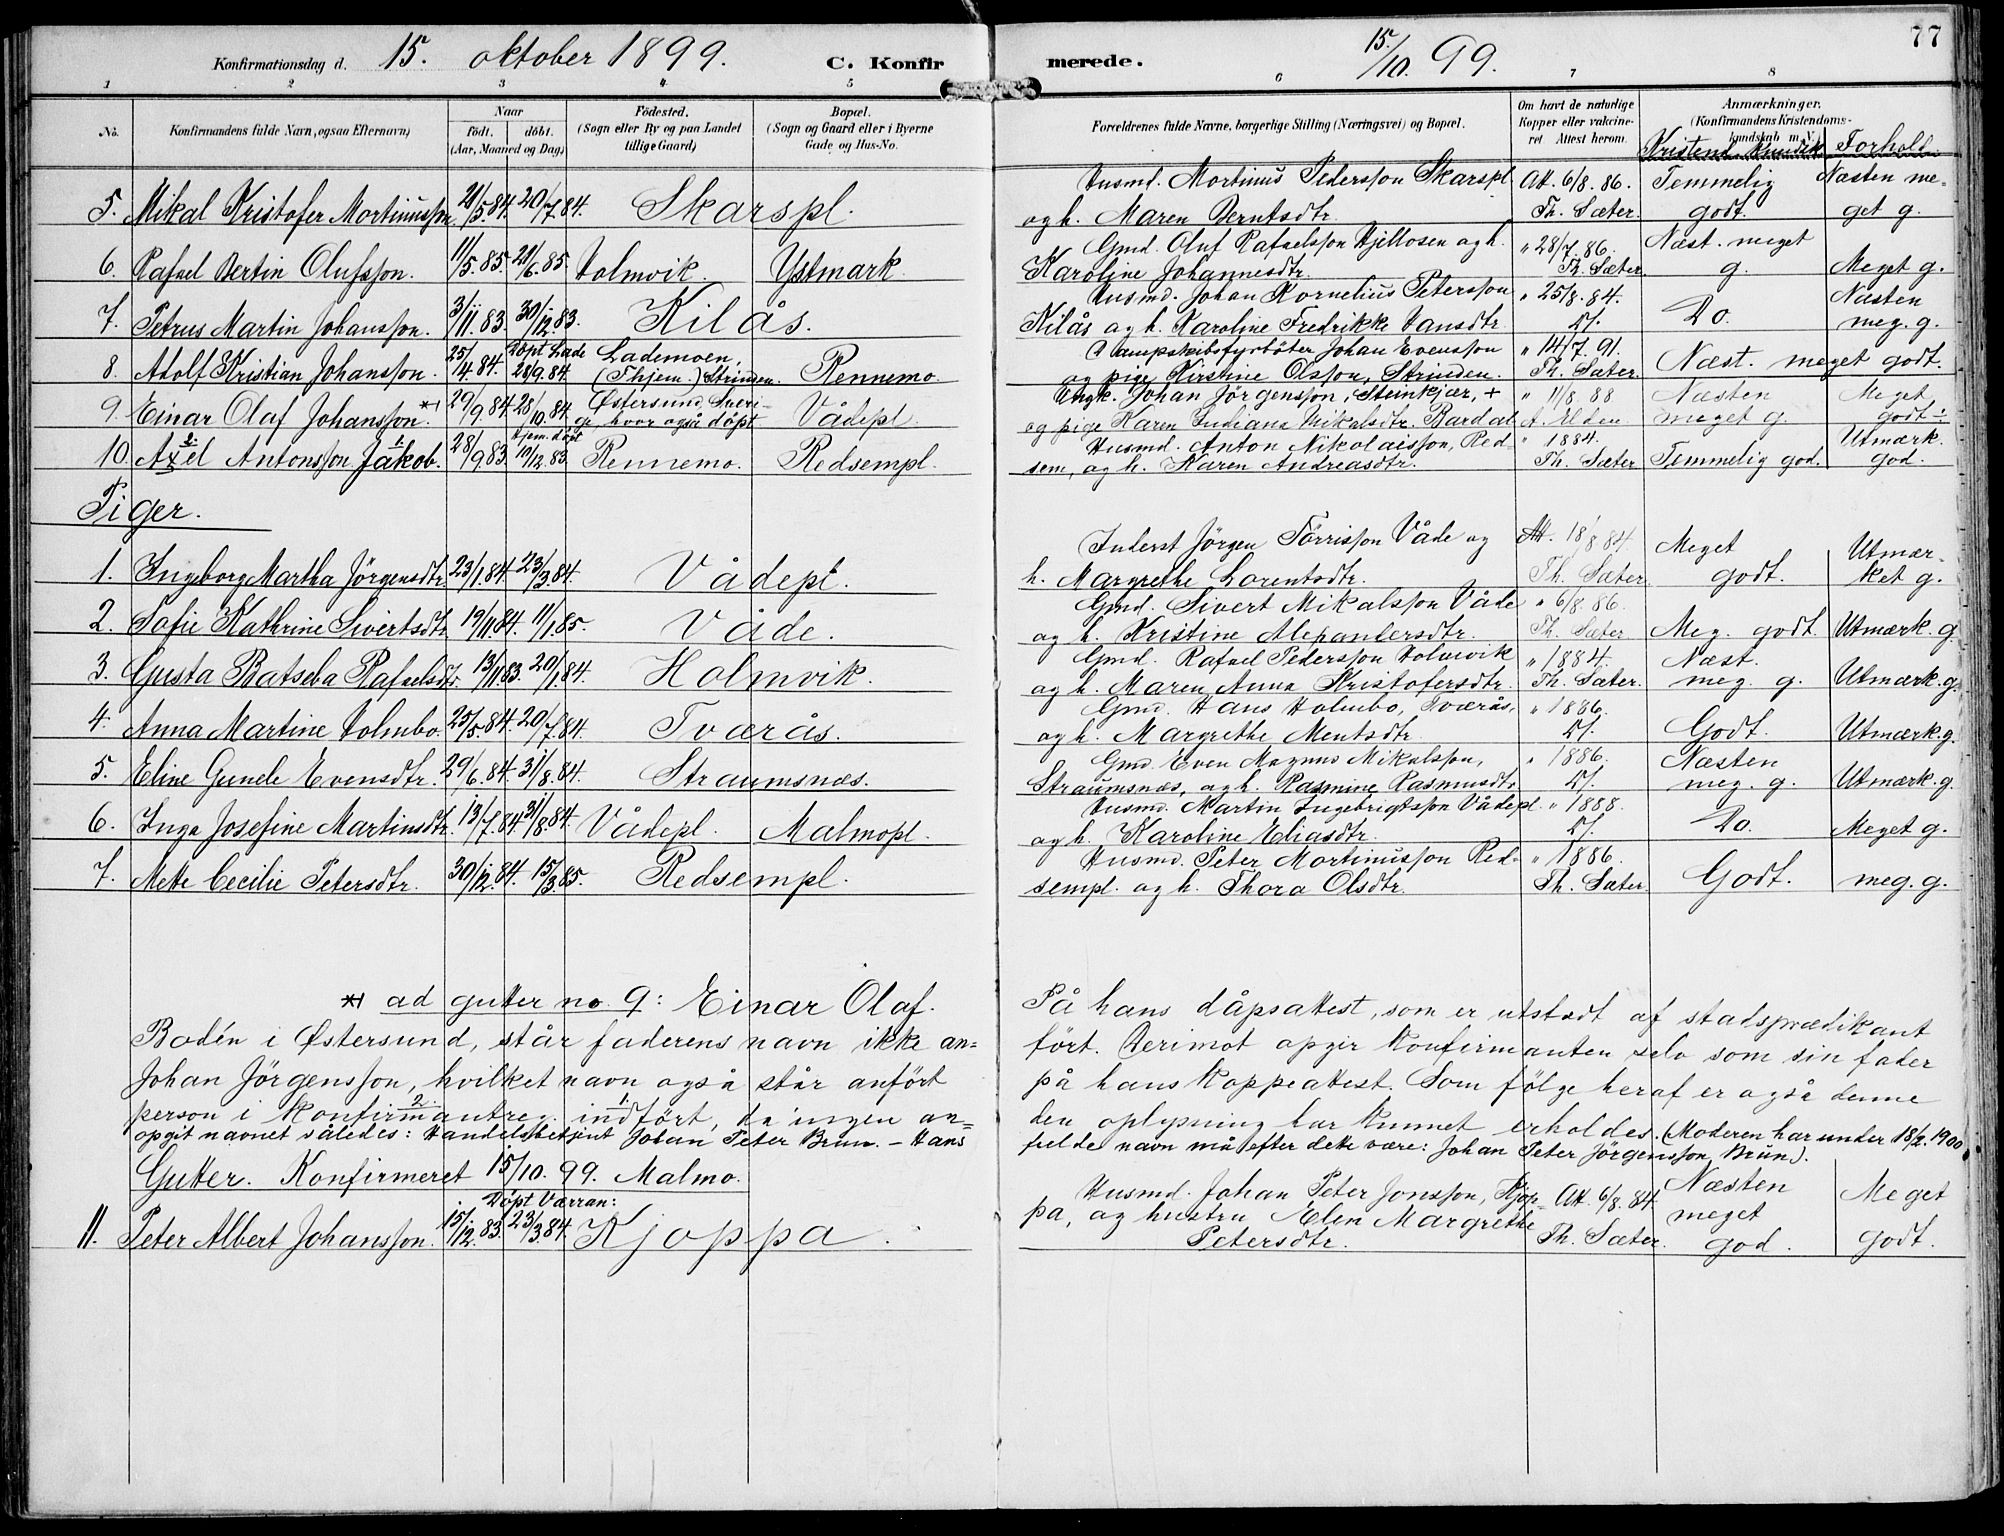 77
Konfirmationsdag d. 15. oktober 1899. C. Konfir
merede. 15/10. 99.
1 2 3 4 5 6 7 8
No. Konfirmandens fulde Navn, ogsaa Efternavn) Naar født. døbt. (Aar, Maaned og Dag) Fødested. (Sogn eller By og paa Landet tillige Gaard) Bopæl. (Sogn og Gaard eller i Byerne Gade og Hus-No.
Forældrenes fulde Navne, borgerlige Stilling (Næringsvei) og Bopæl. Om havt de naturlige Kopper eller vakcineret Attest herom. Anmærkninger. (Konfirmandens Kristendomskundskab m. V.)
Kristend. kundsk. Forhold
5. Mikal Kristofer Mortinussøn. 21/5.84. 20/7.84. Skarspl.
Husmd. Mortinus Pederssøn Skarspl Att. 6/8. 86. Temmelig Næsten me-
og h. Maren Berntsdtr. Th. Sæter. godt. get g.
6. Rafael Bertin Olufssøn. 11/5.85. 21/6.85. Holmvik. Ystmark.
Gmd. Oluf Rafaelssøn Hjellosen og h. " 28/7. 86. Næst. meget
Karoline Johannesdtr. Th. Sæter g. Meget g.
7. Petrus Martin Johanssøn. 3/11.83. 30/12.83. Kilås.
Husmd. Johan Kornelius Peterssøn " 25/8. 84. Næsten
Kilås og h. Karoline Fredrikke Hansdtr. D/. Do. meg. g.
8. Adolf Kristian Johanssøn. 25/4.84. Döpt Lade 28/9.84. Lademoen, (Thjem.) Strinden. Rennemo.
Dampskibsfyrböter Johan Evenssøn " 14/7. 91.
og pige Kirstine Olssøn, Strinden. Th. Sæter. Næst. meget godt.
9. Einar Olaf Johanssøn. *) 29/9.84. 28/10.84. Østersund Sveri-
ge hvor også döpt Vådepl.
Ungk. Johan Jörgenssøn, Steinkjær, + " 11/8 88 Næsten Meget
og pige Karen Indiana Mikalsdtr. Bardal A. Elden. meget g. godt
10. Axel Antonssøn Jakob. 28/9.83. hjem. döpt 10/12.83. Rennemo. Redsempl.
Husmd. Anton Nikolaissøn, Red- " 1884. Utmærk.
sem, og h. Karen Andreasdtr. Th. Sæter Temmelig god. god.
Piger.
1. Ingborg Martha Jörgensdtr. 23/1.84. 23/3.84. Vådepl.
Inderst Jörgen Törrissøn Våde og Att. 18/8 84. Meget Utmær-
h. Margrethe Lorentsdtr. Th. Sæter. godt. ket g.
2. Sofie Kathrine Sivertsdtr. 19/11.84. 11/1.85. Våde.
Gmd. Sivert Mikalssøn Våde " 6/8. 86.
og h. Kristine Alexandersdtr. Th. Sæter Meg. godt. Utmærk. g.
3. Gusta Batseba Rafaelsdtr. 13/11.83. 20/1.84. Holmvik.
Gmd. Rafael Pederssøn Holmvik " 1884. Næst.
og h. Maren Anna Kristofersdtr. Th. Sæter. meg. g. Utmærk. g.
4. Anna Martine Holmbo. 25/5.84. 20/7.84. Tværås.
Gmd. Hans Holmbo, Tværås, " 1886.
og h. Margrethe Mentsdtr. D/. Godt. Utmærk. g.
5. Eline Gunele Evensdtr. 29/6.84. 31/8.84. Straumsnæs.
Gmd. Even Magnus Mikalssøn, " 1886. Næsten
Straumsnæs, og h. Rasmine Rasmusdtr. D/. meg. g. Utmærk. g.
6. Inga Josefine Martinsdtr. 13/7.84. 31/8.84. Vådepl. Malmopl.
Husmd. Martin Ingebrigtssøn Vådepl. " 1888.
og h. Karoline Eliasdtr. D/. Do. Meget g.
7. Mette Cecilie Petersdtr. 30/12.84. 15/3.85. Redsempl.
Husmd. Peter Mortinussøn Red- " 1886.
sempl. og h. Thora Olsdtr. Th. Sæter Godt. meg. g.
*) ad gutter no. 9: Einar Olaf. På hans dåpsattest, som er utstedt af stadsprædikant
Bodén i Østersund, står faderens navn ikke an= fört. Derimot opgir konfirmanten selv som sin fader
Johan Jörgenssøn, hvilket navn også står anfört på hans koppeattest. Som fölge heraf er også denne
person i konfirmantreg. indfört, da ingen an= den oplysning har kunnet erholdes. (Moderen har under 18/2. 1900
opgit navnet således: Handelsbetjent Johan Peter Brun. - Hans fulde navn må efter dette være: Johan Peter Jörgenssøn Brun).
Gutter. Konfirmeret 15/10. 99. Malmo.
11. Peter Albert Johanssøn. 15/12.83. Döpt Værran: 23/3.84. Kjoppa.
Husmd. Johan Peter Jonssøn, Kjop- Att. 6/8. 84. Næsten Meget
pa, og hustru Elen Margrethe meget
Petersdtr. Th. Sæter. god. godt.